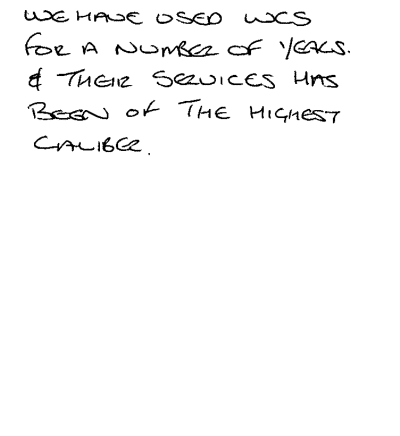 WE HAVE USED WCS
FOR A NUMBER OF YEARS.
& THEIR SERVICES HAS
BEEN OF THE HIGHEST
CALIBER.